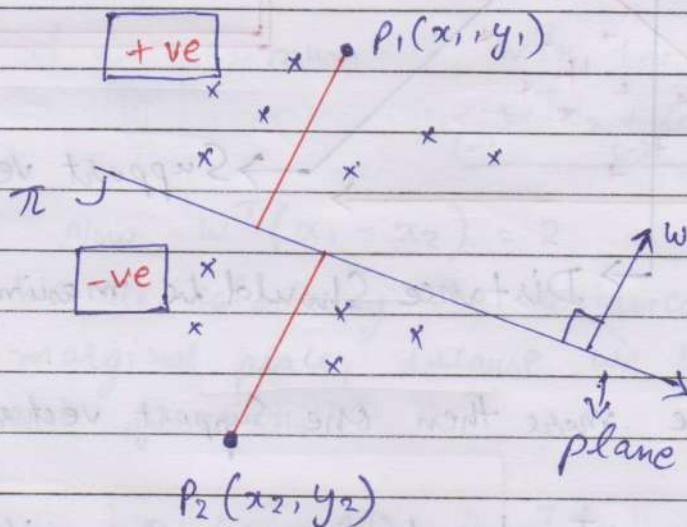 + ve
P₁(x₁, y₁)
π
- ve
w
plane
P₂(x₂, y₂)